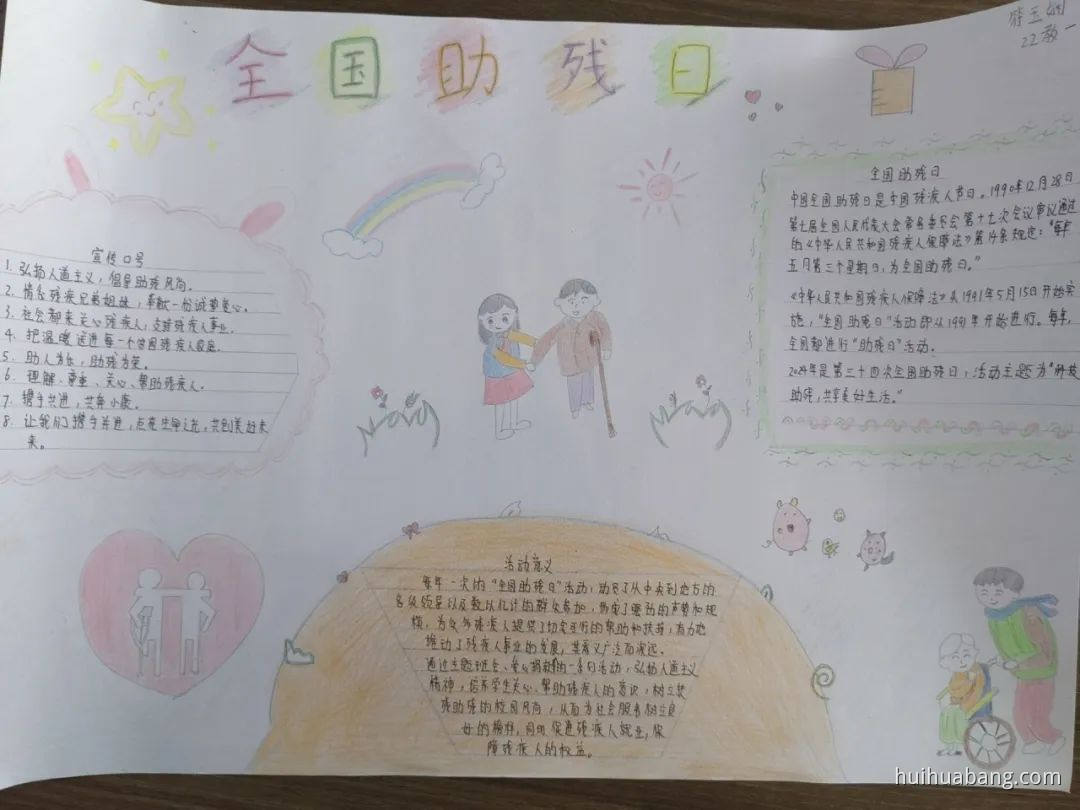 全国助残日
22教一
宣传口号
1. 弘扬人道主义，倡导助残风尚。
2. 情系残疾兄弟姐妹，奉献一份诚挚爱心。
3. 社会都来关心残疾人，支持残疾人事业。
4. 把温暖送进每一个贫困残疾人家庭。
5. 助人为乐，助残为荣。
6. 理解、尊重、关心、帮助残疾人。
7. 携手共进，共奔小康。
8. 让我们携手并进，点亮生命之光，共创美好未
来。
全国助残日
中国全国助残日是全国残疾人节日。1990年12月28日
第七届全国人民代表大会常务委员会第十七次会议审议通过
的《中华人民共和国残疾人保障法》第14条规定："每年
五月第三个星期日，为全国助残日。"
《中华人民共和国残疾人保障法》从1991年5月15日开始实
施，"全国助残日"活动即从1991年开始进行。每年，
全国都进行"助残日"活动。
2024年是第三十四次全国助残日，活动主题为"科技
助残，共享美好生活。"
活动意义
每年一次的"全国助残日"活动，动员了从中央到地方的
各级领导以及数以亿计的群众参加，形成了强劲的声势和规
模，为众多残疾人提供了切实可行的帮助和扶持，有力地
推动了残疾人事业的发展，其意义广泛而深远。
通过主题班会、爱心捐款的一系列活动，弘扬人道主义
精神，培养学生关心、帮助残疾人的意识，树立扶
残助残的校园风尚，从而为社会服务树立良
好的榜样，同时促进残疾人就业，保
障残疾人的权益。
huihuabang.com